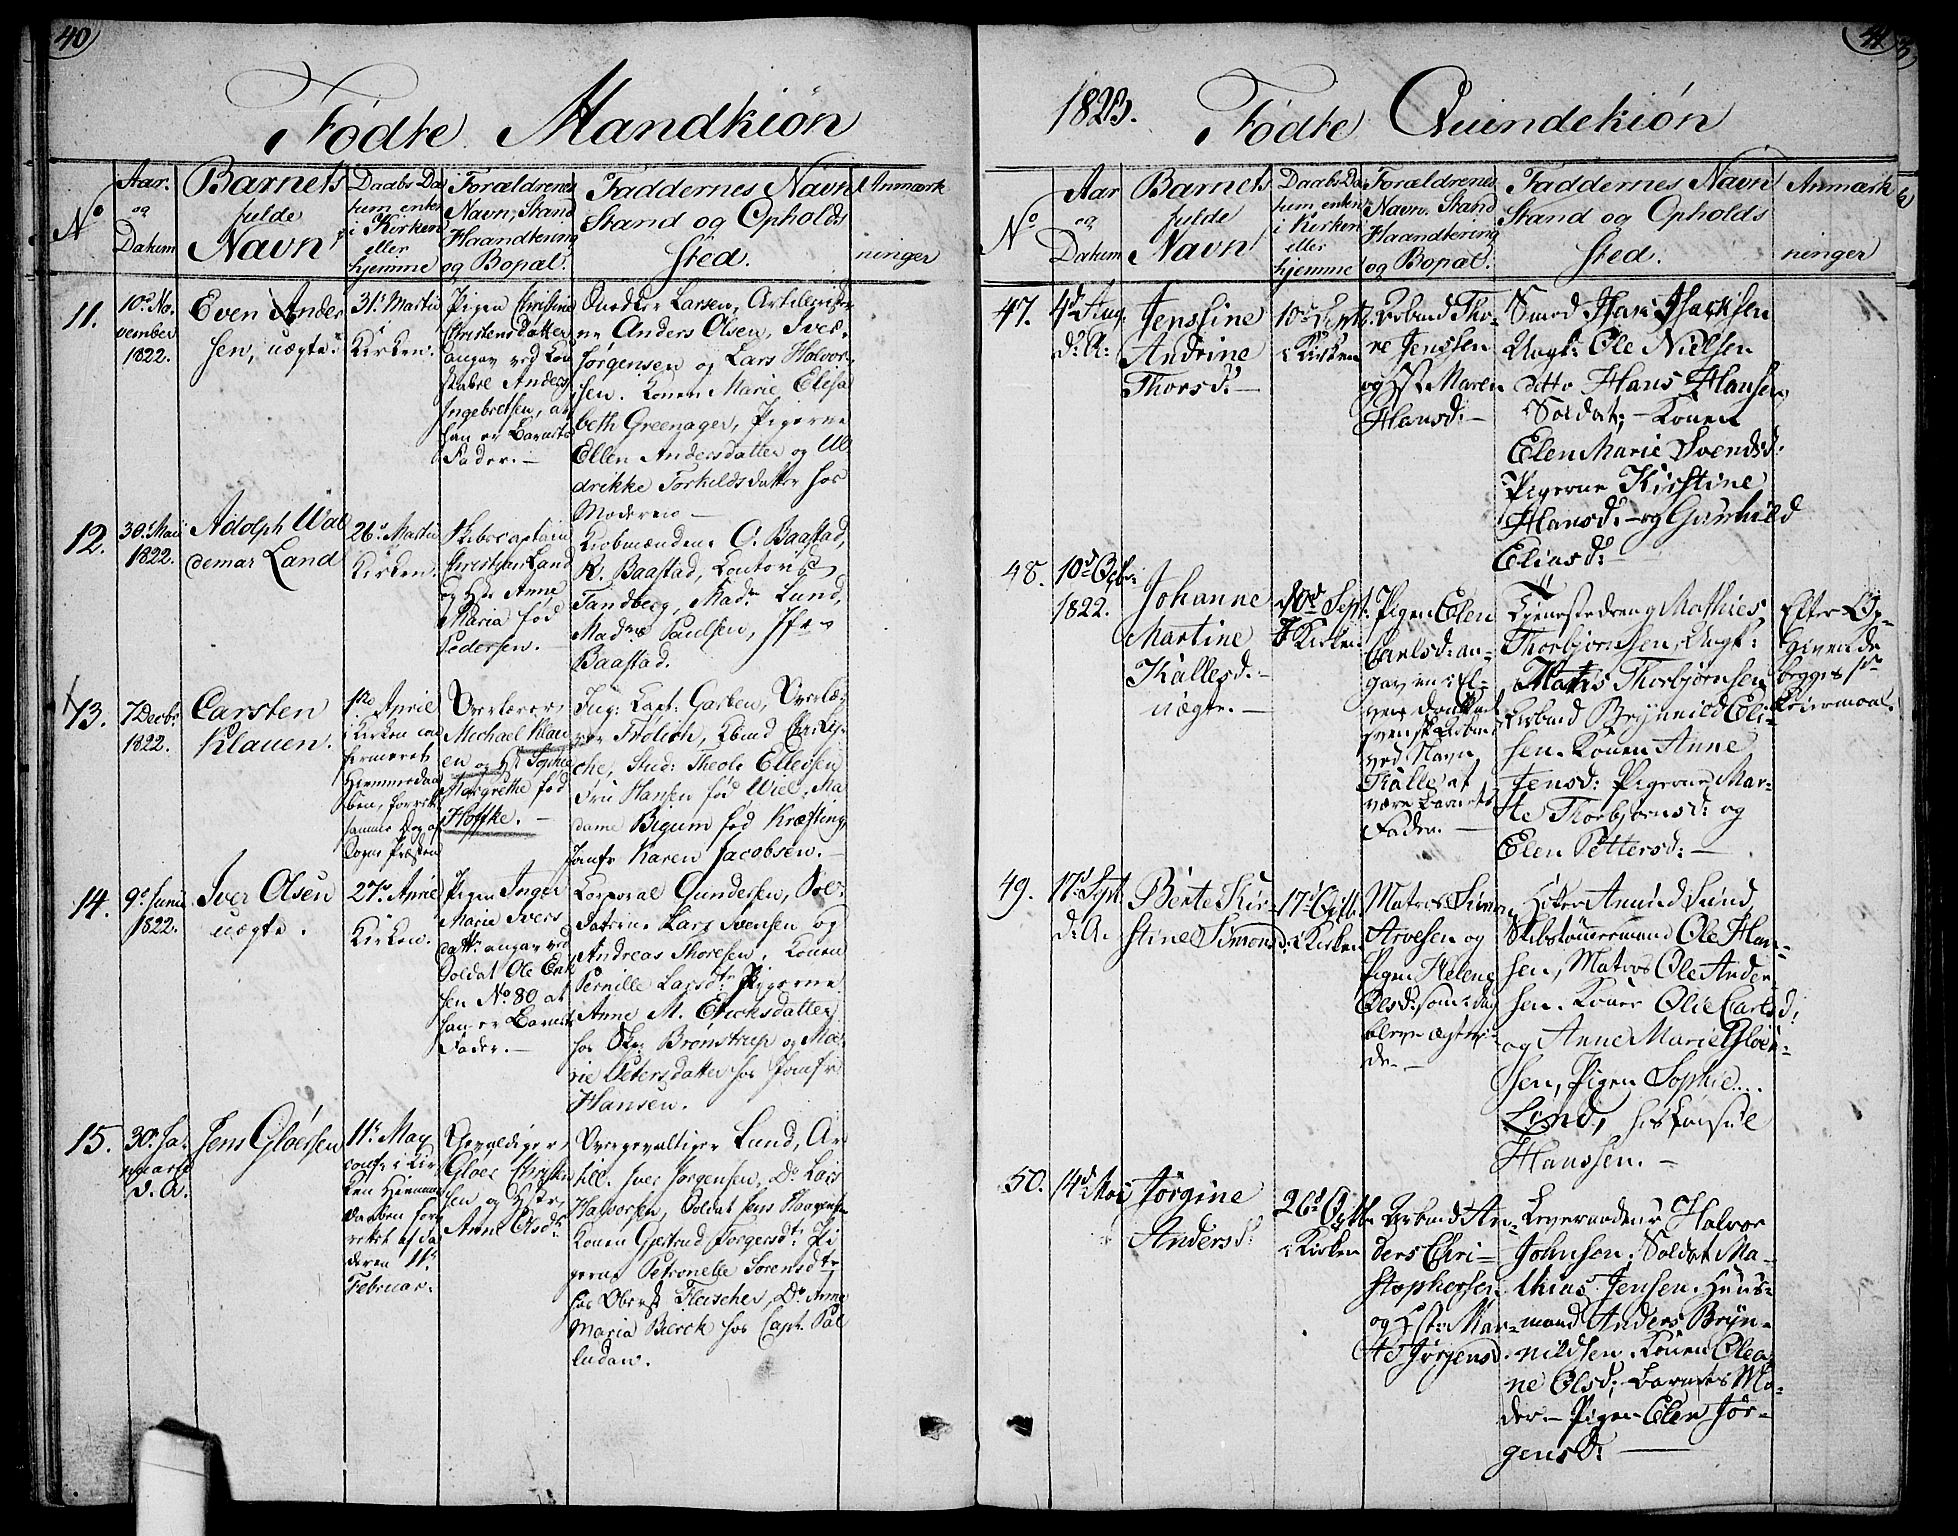 40
Fødte Mandkiön
No
Aar.
og
Datum
Barnets
fulde
Navn
Daabs Da
tum enten
i Kirken
eller
hjemme
Forældrenes
Navn, Stand
Haandtering
og Bopæl.
Faddernes Navn
Stand og Opholds
Sted.
Anmærk
ninger
11.
10de No
vember
1822.
Even Ander
sen, uægte
31te Martii
i
Kirken.
Pigen Christine
Christensdatter
angav ved Con
stabel Anders
Ingebretsen, at
han er Barnets
Fader.—
Larsen, Artillerister
ne Anders Olsen, Iver
Jørgensen og Lars Halvor
sen. Konen Marie Elisa
beth Greenager, Pigerne
Ellen Andersdatter og Ul
drikke Torkildsdatter hos
Moderen —
12.
30te Maii
1822.
Adolph Wal
demar Land
26de Martii
i
Kirken.
Skibscaptain
Christian Land
og Hde Anne
Maria fød
Pedersen.—
Kiøbmændene O. Baastad,
R. Baastad, Contorist
Tandberg, Made Lund,
Made Paulsen, Jfr
Baastad.
13.
7 Decbr
1822.
Carsten
Klauen.
1ste April
i Kirken con
firmeret
Hiemmedaa
ben, forrett.
samme Dag af
Sogne Præsten
Overlærer
Michael Klau
en og Hde Sophie
Margrethe fød
Hoffke.—
Ing: Capt: Garben, Overlæ
rer Frölich, Kbmd Chr. Ly
che, Stud: Theol: Ellefsen
Fru Hansen fød Wiel, Ma
dame Bigum fød Kræfting,
Jomfr Karen Jacobsen.—
14.
9de Junii
1822.
Iver Olsen
uægte.
27de April
i
Kirken.
Pigen Inger
Marie Ivers
datter angav ved
Soldat Ole Erik
sen No 80 at
han er Barnets
Fader.—
Corporal Gundersen, Sol
daterne Lars Svensen og
Andreas Thoresen, Konen
Pernille Larsdr Pigerne
Anne M. Ericksdatter
hos Brønstrup og Ma
rie Petersdatter hos Jomfr
Hansen.
15.
30te Ja
nuarii
d. A.
Jens Gloersen
11te May
conf: i Kir
ken Hiemme
daaben for
rettet af Fa
deren 11te
Februar.
Gevaldiger
Gloer Christen
sen og Hustr.
Anne Olsdr
Overgevaltiger Lund, Ar
till. Iver Jorgensen, Do Lars
Halvorsen, Soldat Jens Haagens.
Konen Gjertrud Torgersdr Pi
gerne Petronelle Sorensdtr
hos Oberst Fleischer, Do Anne
Maria Bierck hos Capt. Pal
ludan.
1823.
41
Fødte Quindekiön
No
Aar
og
Datum
Barnets
fulde
Navn
Daabs Da
tum, enten
i Kirken
eller
hjemme
Forældrenes
Navn. Stand
Haandtering
og Bopæl.
Faddernes Navn
Stand og Opholds
Sted.
Anmærk
ninger
47.
4d Aug.
d: A:
Jensine
Andrine
Thorsd:—
10d Sept:
i Kirken
Arbmd Tho-
re Jenssen
og Hst: Maren
Hansd:—
Smed Hans Hansen
Ungk: Ole Nielsen
ditto Hans Hansen,
Soldat;— Konen
Elen Marie Svendsd:
Pigerne Kirstine
Hansd:— og Gunhild
Eliasd:—
48.
10d Octbr:
1822.
Johanne
Martine
Kallesd:—
uægte.—
10d Sept:
i Kirken
Pigen Elen
Carlsd: an-
gav en
svensk Arbmd
ved Navn
Kalle at
være Barnets
Fader.—
Tjenestedreng Mathies
Thorbjørnsen, Ungk:
Mattis Thorbjørnsen,
Arbmd Brynnild Eli-
sen. Konen Anne
Jensd: Pigerne Mar-
te Thorbjørnsd: og
Elen Pettersd:—
Efter Op-
givende
49.
17d Sept.
d: A.
Bente Kir-
stine Simons
d:
17d Octb
i Kirken
Matros Simon
Arvesen og
Pigen Helene
Olsd: som i dag
bleve ægtevi-
de.—
Høker Amund Lund,
Skibstømmermand Ole Han-
sen, Matros Ole Ander
sen. Koner Olie Carlsd:
og Anne Marie Gloer-
sen, Pigen Sophie
Lind, hos Konsul
Hanssen.—
50.
14d Mai
Jörgine
Andersd:
26d Octb
i Kirken
Arbmd An-
ders Chri-
stophersen
og Hst: Mar-
te Jørgensd.
Leverandeur Halvor
Johnsen, Soldat Ma-
thias Jensen. Huus-
mand Anders Bryn-
nildsen. Konen Olea
ne Olsd; Barnets Mo-
der— Pigen Elen Jør-
gensd:—